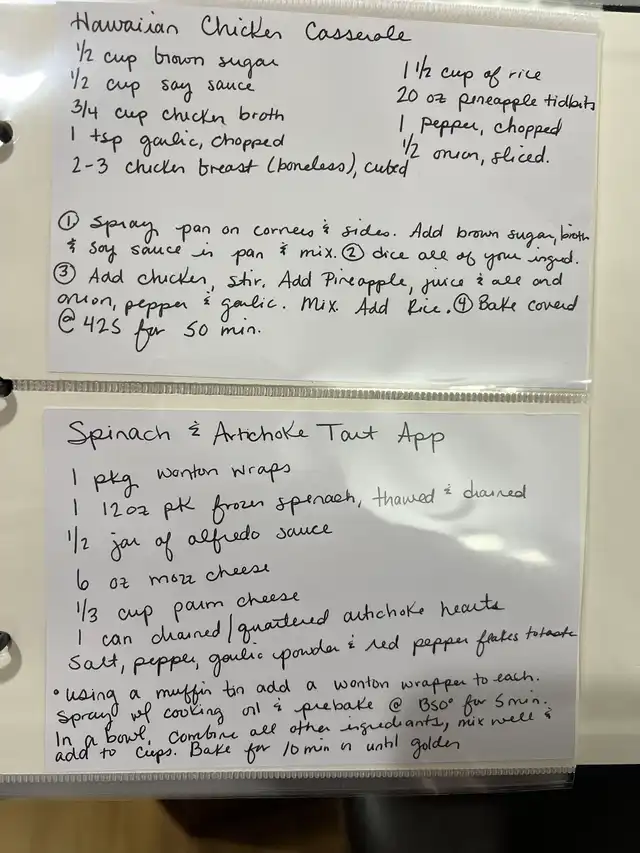 Hawaiian Chicken Casserole
1/2 cup brown sugar
1/2 cup soy sauce
3/4 cup chicken broth
1 tsp garlic, chopped
2-3 chicken breast (boneless), cubed
1 1/2 cup of rice
20 oz pineapple tidbits
1 pepper, chopped
1/2 onion, sliced.
① Spray pan on corners & sides. Add brown sugar, broth
& soy sauce in pan & mix. ② dice all of your ingred.
③ Add chicken, stir. Add Pineapple, juice & all and
onion, pepper & garlic. Mix. Add Rice. ④ Bake covered
@ 425 for 50 min.
Spinach & Artichoke Tart App
1 pkg wonton wraps
1 12oz pk frozen spinach, thawed & drained
1/2 jar of alfredo sauce
6 oz mozz cheese
1/3 cup parm cheese
1 can drained/quartered artichoke hearts
Salt, pepper, garlic powder & red pepper flakes to taste
• using a muffin tin add a wonton wrapper to each.
Spray w/ cooking oil & prebake @ 350° for 5 min.
In a bowl, combine all other ingredients, mix well &
add to cups. Bake for 10 min or until golden